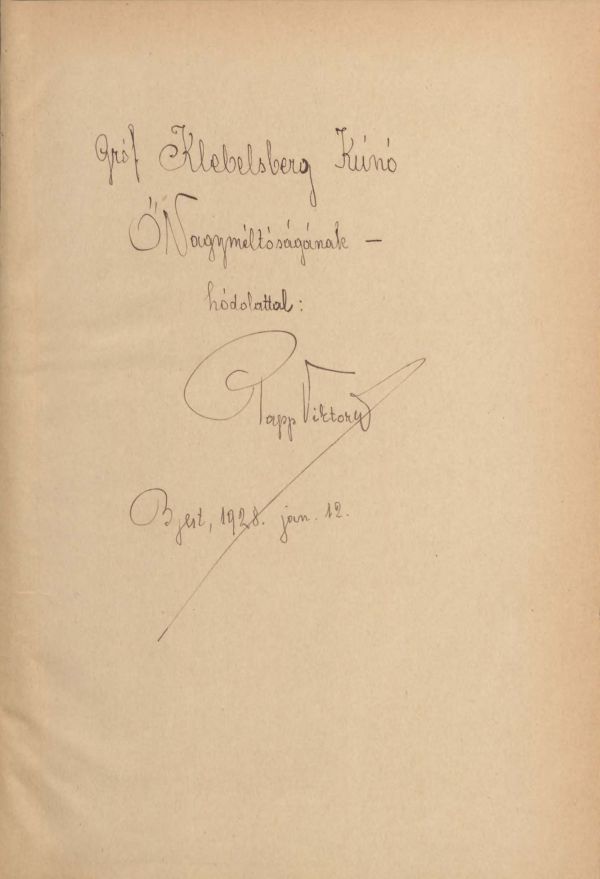 Gróf Klebelsberg Kúnó
Ő Nagyméltóságának —
hódolattal:
Papp Viktor
Bpest, 1928. jan. 12.